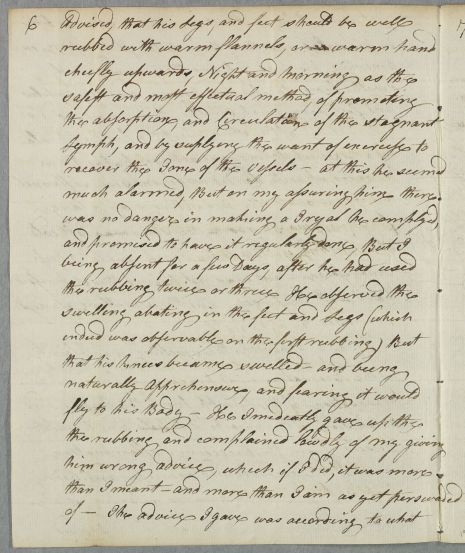 6 Advised, that his Legs, and feet should be well
rubbed with warm flannels, or a warm hand
cheefly upwards, Night and morning as the
safest and most effectual method, of promoteing
the absorption, and Circulation of the stagnant
Lymph, and by suplying the want of exercise to
recover the Tone of the vessels – at this he seemed
much alarmed, But on my assuring him there
was no danger in making a Tryal he complyed,
and promised to have it regularly done, But I
being absent for a few Days, after he had used
the rubbing twice or thrice He observed the
swelling abating in the feet and Legs (which
indeed was observable on the first rubbing) But
that his knees became swelled – and being
naturally Apprehensive, and fearing it would
fly to his Body – He Imediatly gave up the
the rubbing and complained lowdly of my giving
him wrong advice, which if I did, it was more
than I meant – and more than I am as yet perswaded
of – The advice I gave was according to what